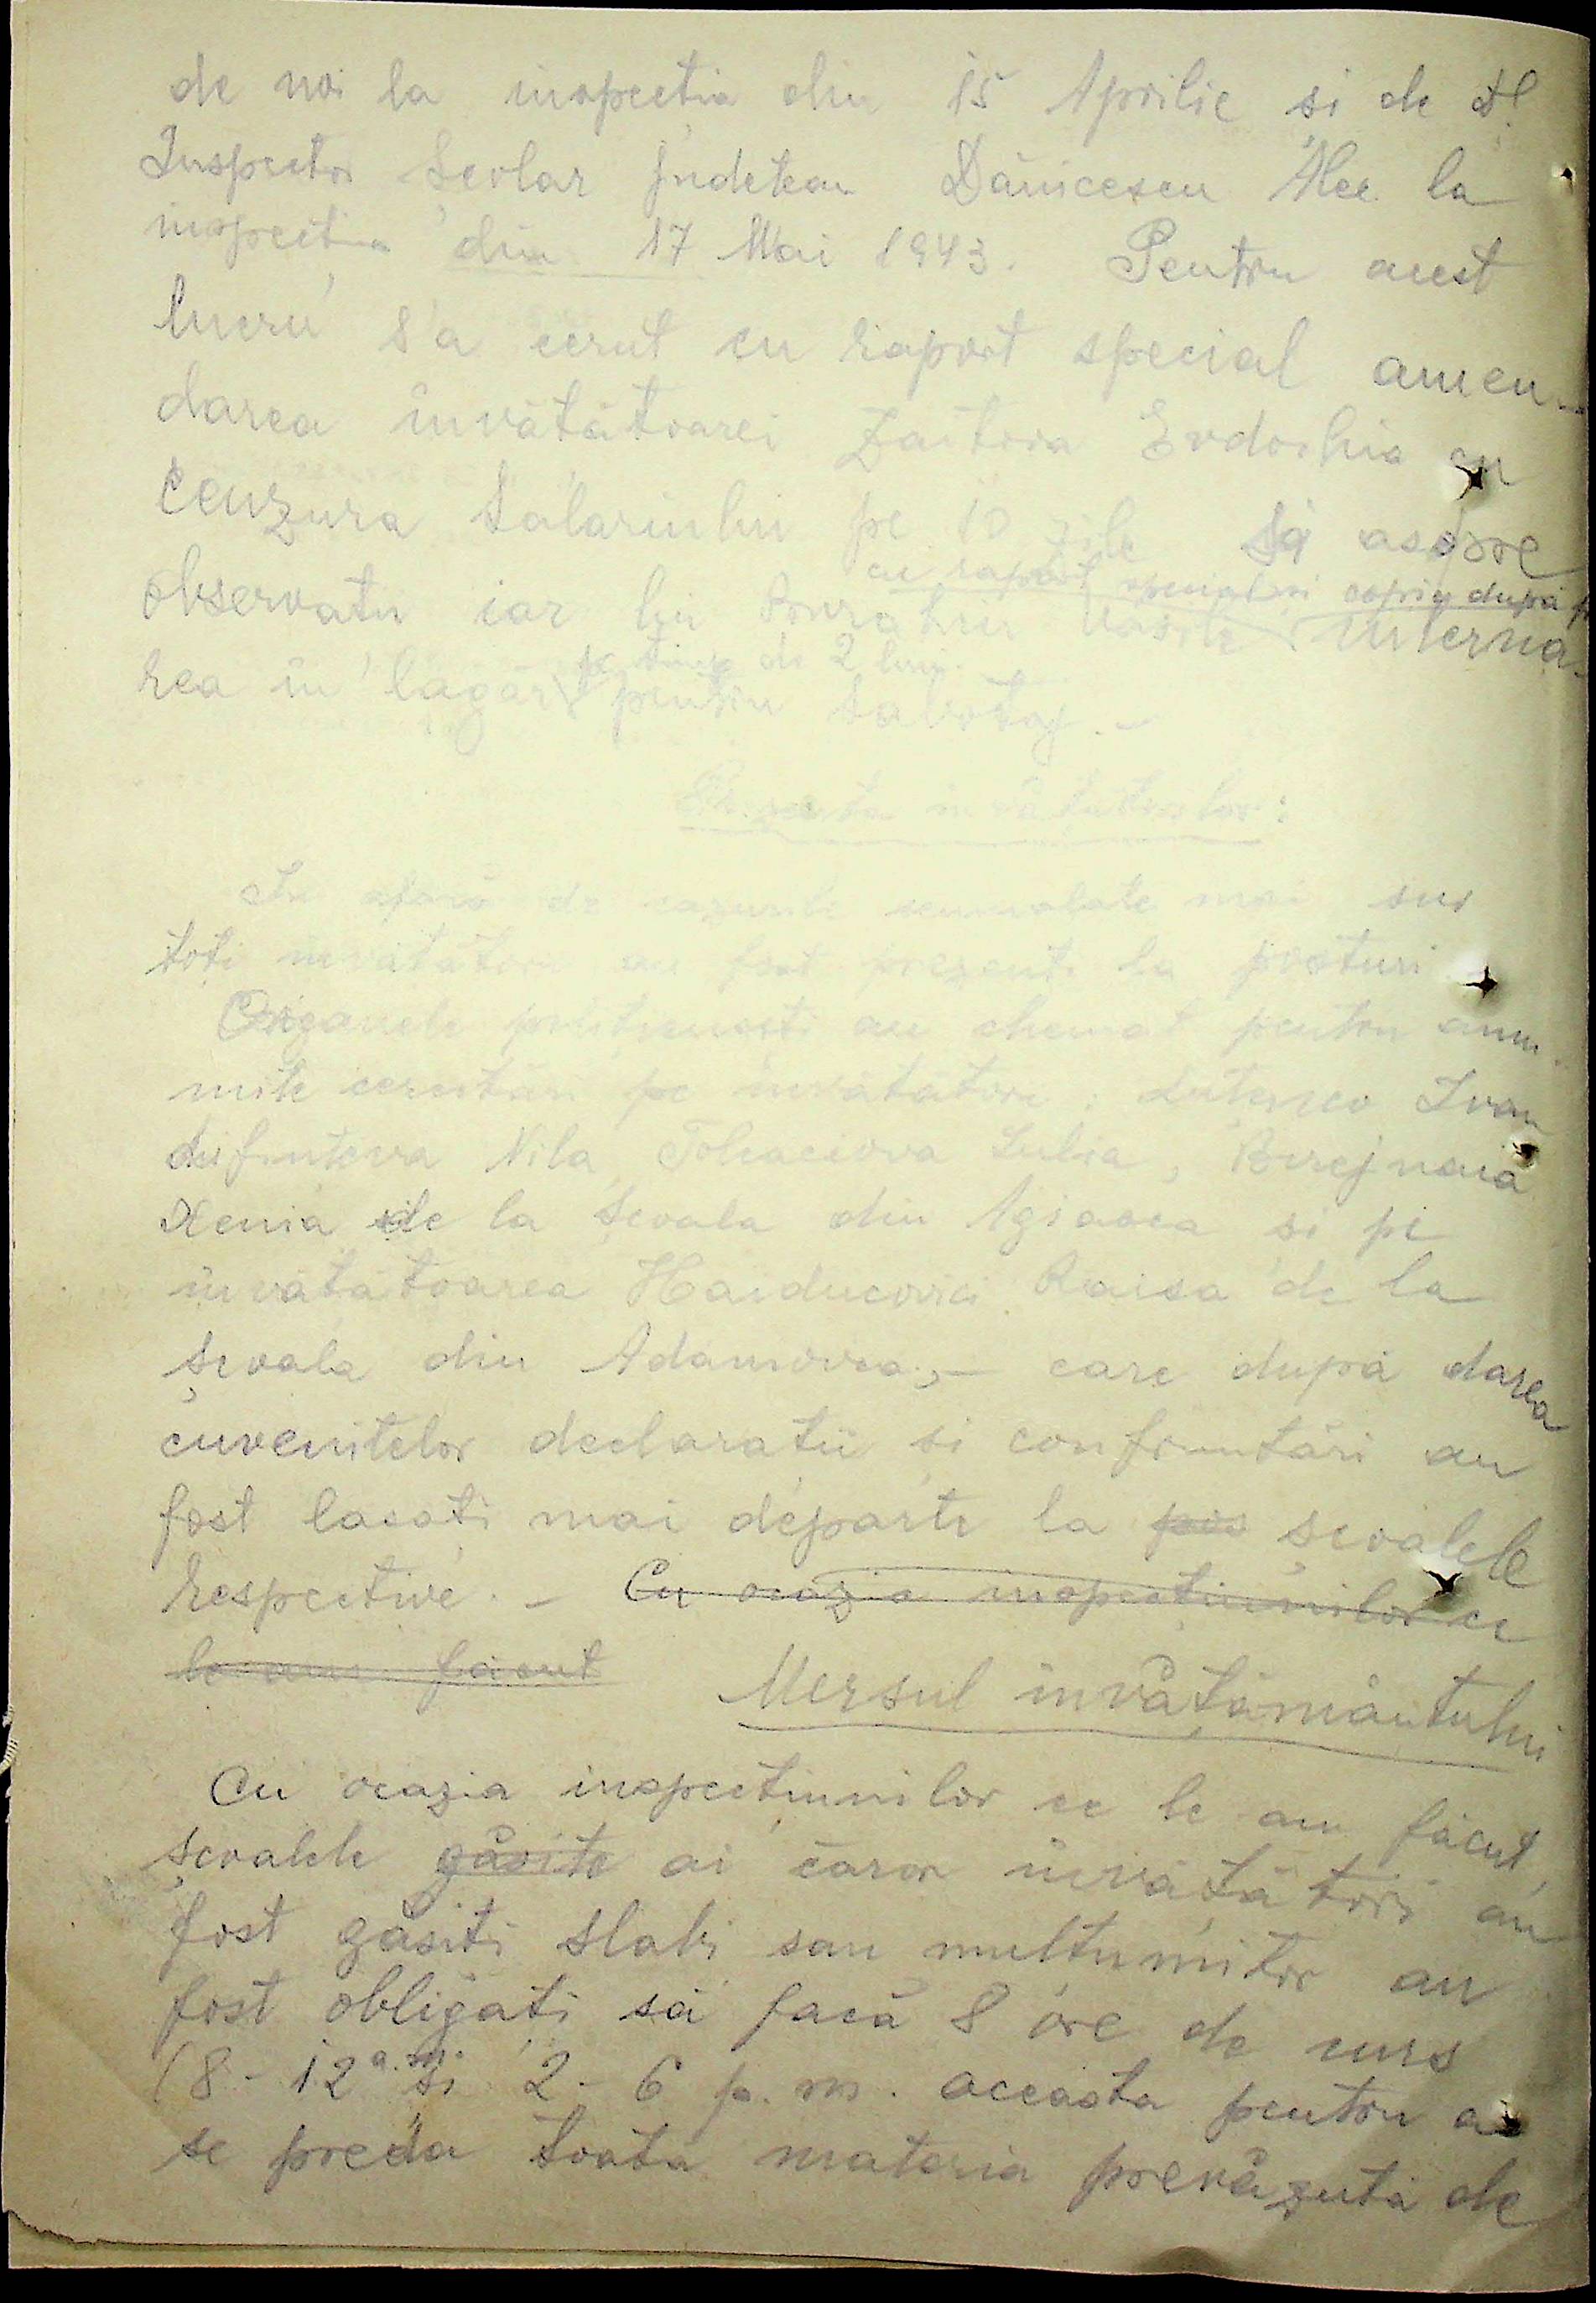 de noi la inspecția din 15 Aprilie și de Dl.
Inspector Școlar Județean Dănicescu Alec la
inspecția din 17 Mai 1943. Pentru acest
lucru s'a cerut cu raport special amen-
darea învățătoarei Zaitova Evdochia cu
Cenzura Salariului pe 10 zile să aspre
cu raport special și copia după
observații iar lui Vasile interna-
pe timp de 2 luni
rea în lagăr pentru Sabotaj. -
Prezența învățătorilor:
In afară de cazurile semnalate mai sus
toți învățătorii au fost prezenți la posturi -
Organele polițienești au chemat pentru anu-
mite cercetări pe învățătorii: Ivan
Nila, Tolcaciova Iulia, Berejnaia
Xenia de la școala din Agiasca și pe
învățătoarea Haiducova Raisa de la
școala din Adamovca, - care după darea
cuvenitelor declarații și confruntări au
fost lăsați mai departe la pos școalele
respective. - Cu ocazia inspecțiunilor ce
le am făcut
Mersul învățământului
Cu ocazia inspecțiunilor ce le am făcut,
școalele găsite ai căror învățători au
fost găsiți slabi sau mulțumitor au
fost obligați să facă 8 ore de curs
(8 - 12 a.m. și 2 - 6 p.m. aceasta pentru a
se preda toată materia prevăzută de